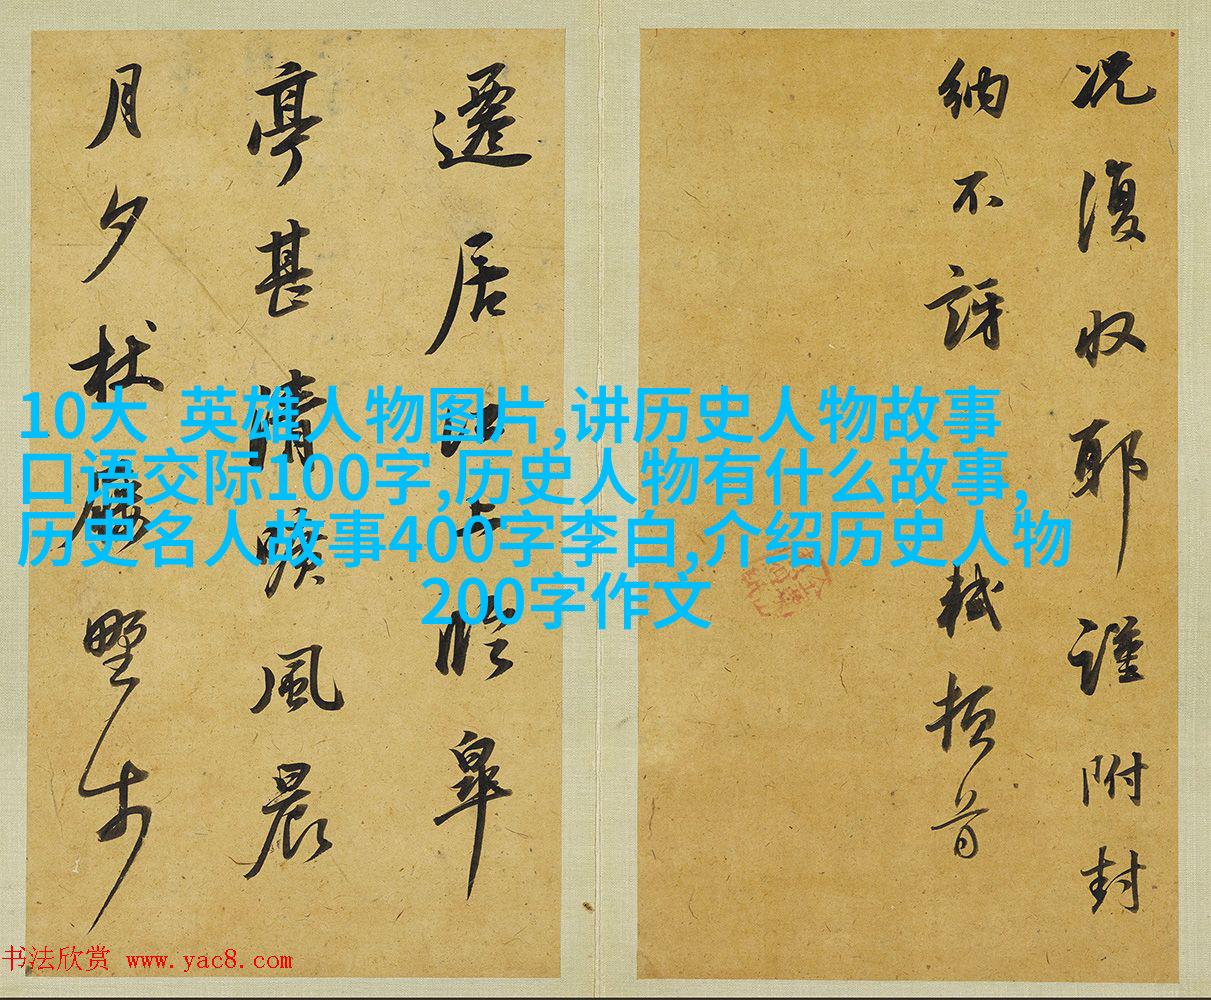 况復收耶謹附封
納不訝軾頓首
遷居江上臨皋
亭甚清曠風晨
月夕杖屨野步
10大 英雄人物图片,讲历史人物故事
口语交际100字,历史人物有什么故事,
历史名人故事400字李白,介绍历史人物
200字作文
书法欣赏 www.yac8.com